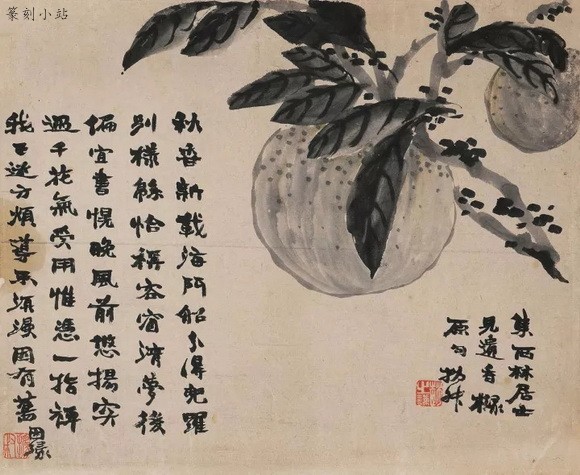 篆刻小站
集西林居士
見遺香櫞
原句
秋香新載海門船分得兜羅
別樣緜恰稱客窗清夢後
偏宜書幌晚風前揚突
過千花氣受用惟憑一指禪
我迷方煩導須漫因有舊
因緣